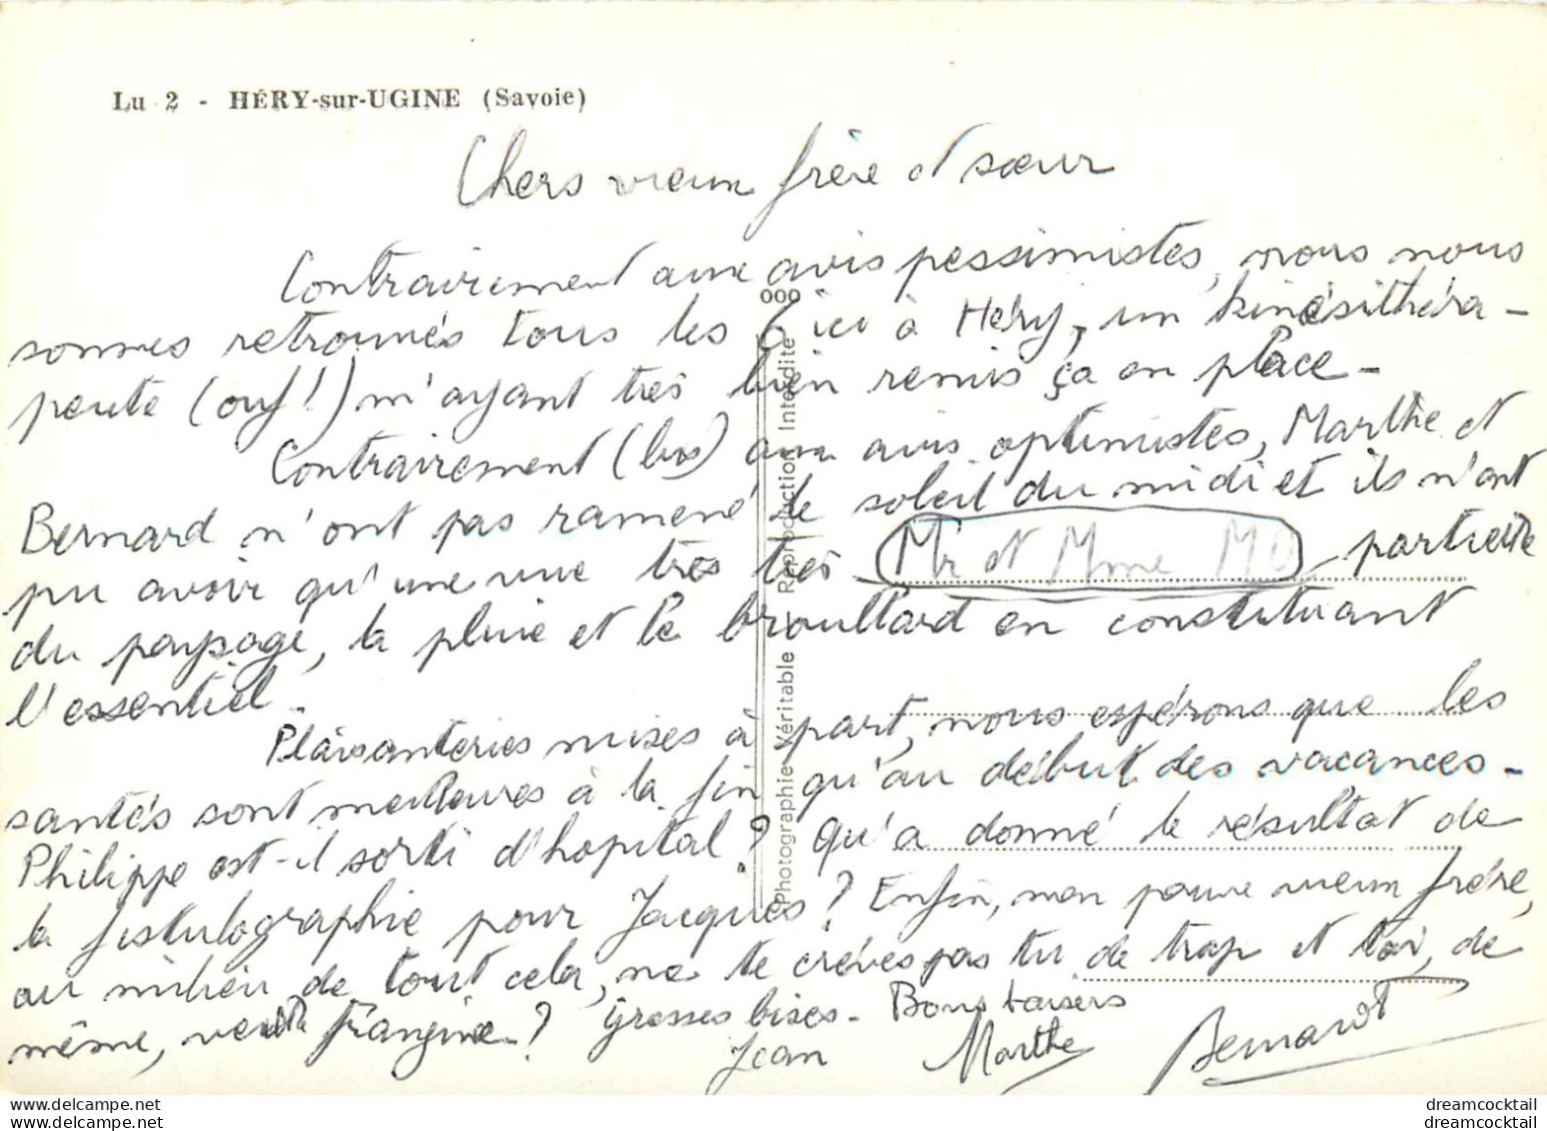 Lu 2 - HÉRY-sur-UGINE (Savoie)
Chers vieux frère et sœur
Contrairement aux avis pessimistes, nous nous
sommes retrouvés tous les 6 ici à Héry, un kinésithéra-
peute (ouf!) m'ayant très bien remis ça en place-
Contrairement (bis) aux avis optimistes, Marthe et
Bernard n'ont pas ramené le soleil du midi et ils n'ont
pu avoir qu'une vue très très partielle
Mr et Mme MO
du paysage, la pluie et le brouillard en constituant
l'essentiel.
Plaisanteries mises à part, nous espérons que les
santés sont meilleures à la fin qu'au début des vacances-
Philippe est-il sorti d'hopital? Qu'a donné le résultat de
la fistulographie pour Jacques? Enfin, mon pauvre vieux frère,
au milieu de tout cela, ne te crèves pas tu de trop et toi, de
même, frangine? Grosses bises- Bons baisers
Jean Marthe Bernard
000
Photographie Véritable Reproduction Interdite
dreamcocktail
dreamcocktail
www.delcampe.net
www.delcampe.net